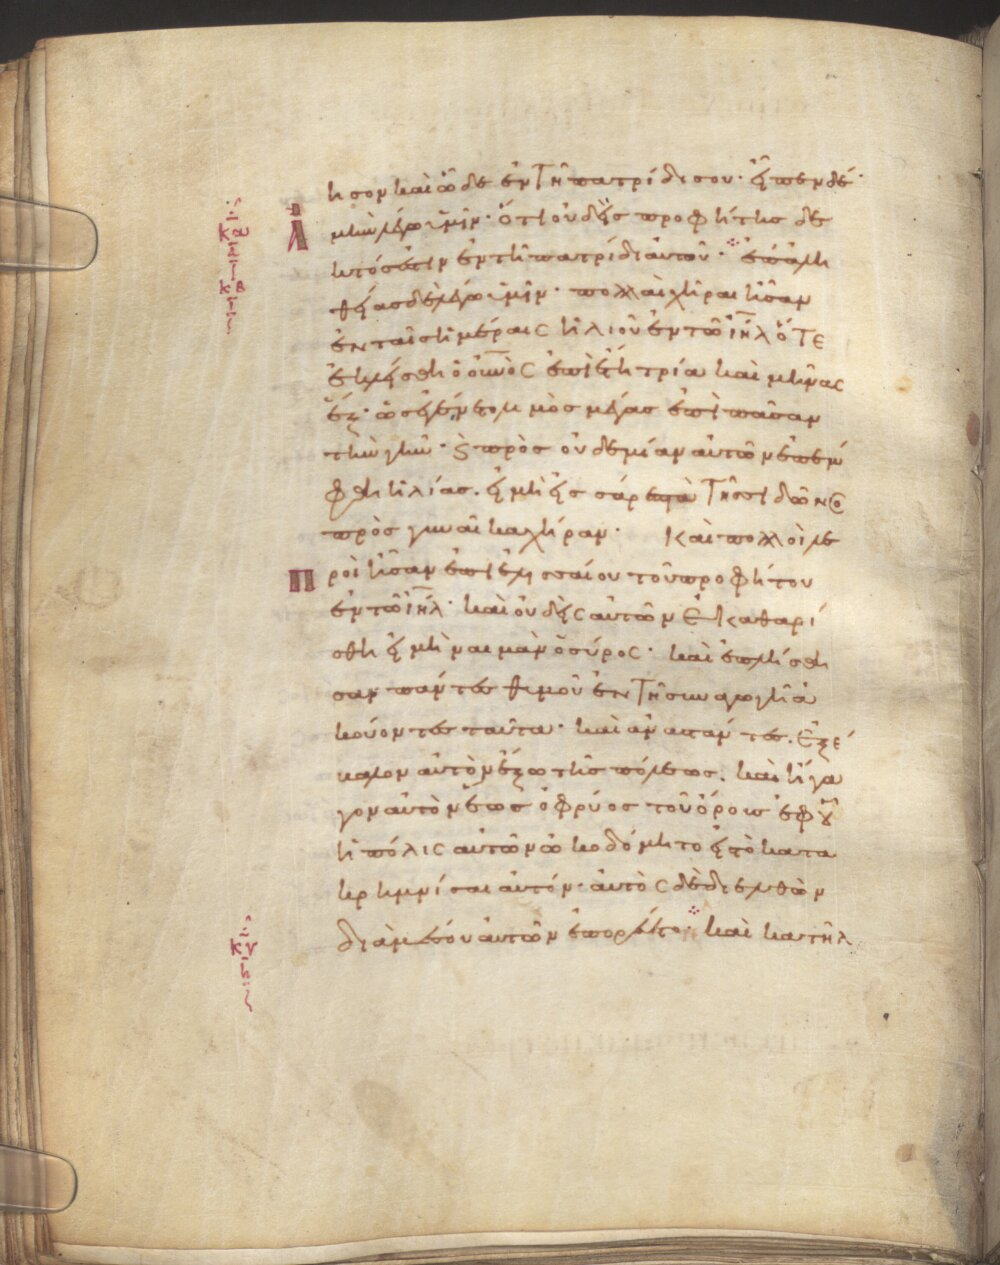 ησον καὶ ὧδε ἐν τῆ πατρίδι σου· εἶπεν δέ·
κα
ἀμὴν λέγω ὑμῖν· ὅτι οὐδεὶς προφήτης δε
κτός ἐστιν ἐν τῆ πατρίδι αὐτοῦ· ἐπ' ἀλη
κβ
θείας δὲ λέγω ὑμῖν· πολλαὶ χῆραι ἦσαν
ἐν ταῖς ἡμέραις ἡλιοῦ ἐν τῶ ἰηλ ὅτε
ἐκλείσθη ὁ οὐνὸς ἐπὶ ἔτη τρία καὶ μῆνας
ἕξ· ὡς ἐγένετο λιμὸς μέγας ἐπὶ πᾶσαν
τὴν γῆν· ϗ πρὸς οὐδεμίαν αὐτῶν ἐπέμ
φθη ἡλίας. εἰ μὴ εἰς σάρεπτα τῆς σιδῶνος
πρὸς γυναῖκα χήραν· Καὶ πολλοὶ λε
προὶ ἦσαν ἐπὶ ἐλισσαίου τοῦ προφήτου
ἐν τῶ ἰηλ· καὶ οὐδεὶς αὐτῶν ἐκαθαρί
σθη εἰ μὴ ναιμὰν ὁ σύρος· καὶ ἐπλήσθη
σαν πάντες θυμοῦ ἐν τῆ συναγωγῆ ἀ
κούοντες ταῦτα· καὶ ἀναστάντες. ἐξέ
βαλον αὐτὸν ἔξω τῆς πόλεως. καὶ ἤγα
γον αὐτὸν ἕως ὀφρύος τοῦ ὄρους ἐφ' οὗ
ἡ πόλις αὐτῶν ὠκοδόμητο εἰς τὸ κατα
κρημνίσαι αὐτόν· αὐτὸς δὲ διελθὼν
κγ
διὰ μέσου αὐτῶν ἐπορεύετο· καὶ κατῆλ